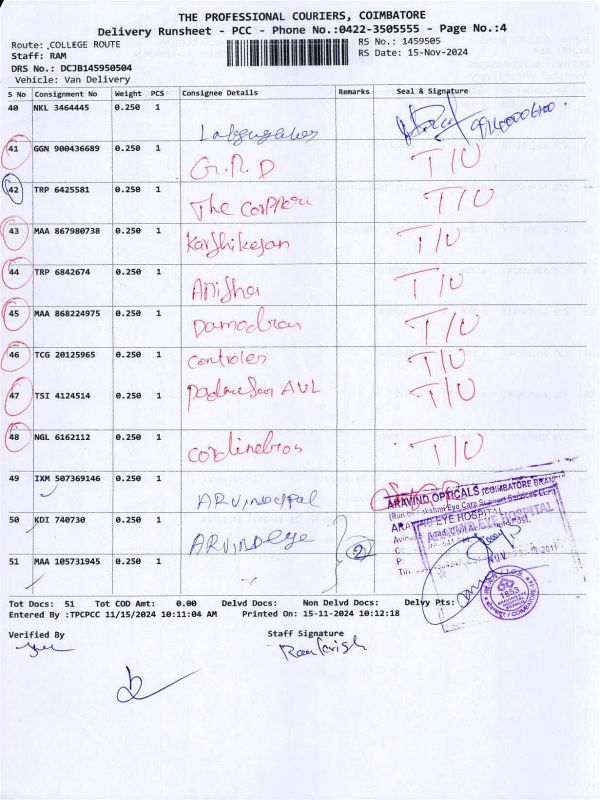 THE PROFESSIONAL COURIERS, COIMBATORE
Delivery Runsheet - PCC - Phone No.:0422-3505555 - Page No.:4
Route: COLLEGE ROUTE RS No.: 1459505
Staff: RAM RS Date: 15-Nov-2024
DRS No.: DCJB145950504
Vehicle: Van Delivery
S No Consignment No Weight PCS Consignee Details Remarks Seal & Signature
40 NKL 3464445 0.250 1
41 GGN 900436689 0.250 1 G.R.D T/U
42 TRP 6425581 0.250 1 The T/U
43 MAA 867980738 0.250 1 Karthikeyan T/U
44 TRP 6842674 0.250 1 Anisha T/U
45 MAA 868224975 0.250 1 Damodran T/U
46 TCG 20125965 0.250 1 controler T/U
47 TSI 4124514 0.250 1 T/U
48 NGL 6162112 0.250 1 T/U
49 IXM 507369146 0.250 1
ARAVIND OPTICALS (COIMBATORE BRANCH)
50 KDI 740730 0.250 1 ARVINDeye 2
EYE HOSPITAL
51 MAA 105731945 0.250 1
1853
Tot Docs: 51 Tot COD Amt: 0.00 Delvd Docs: Non Delvd Docs: Delvy Pts:
Entered By :TPCPCC 11/15/2024 10:11:04 AM Printed On: 15-11-2024 10:12:18
Verified By Staff Signature